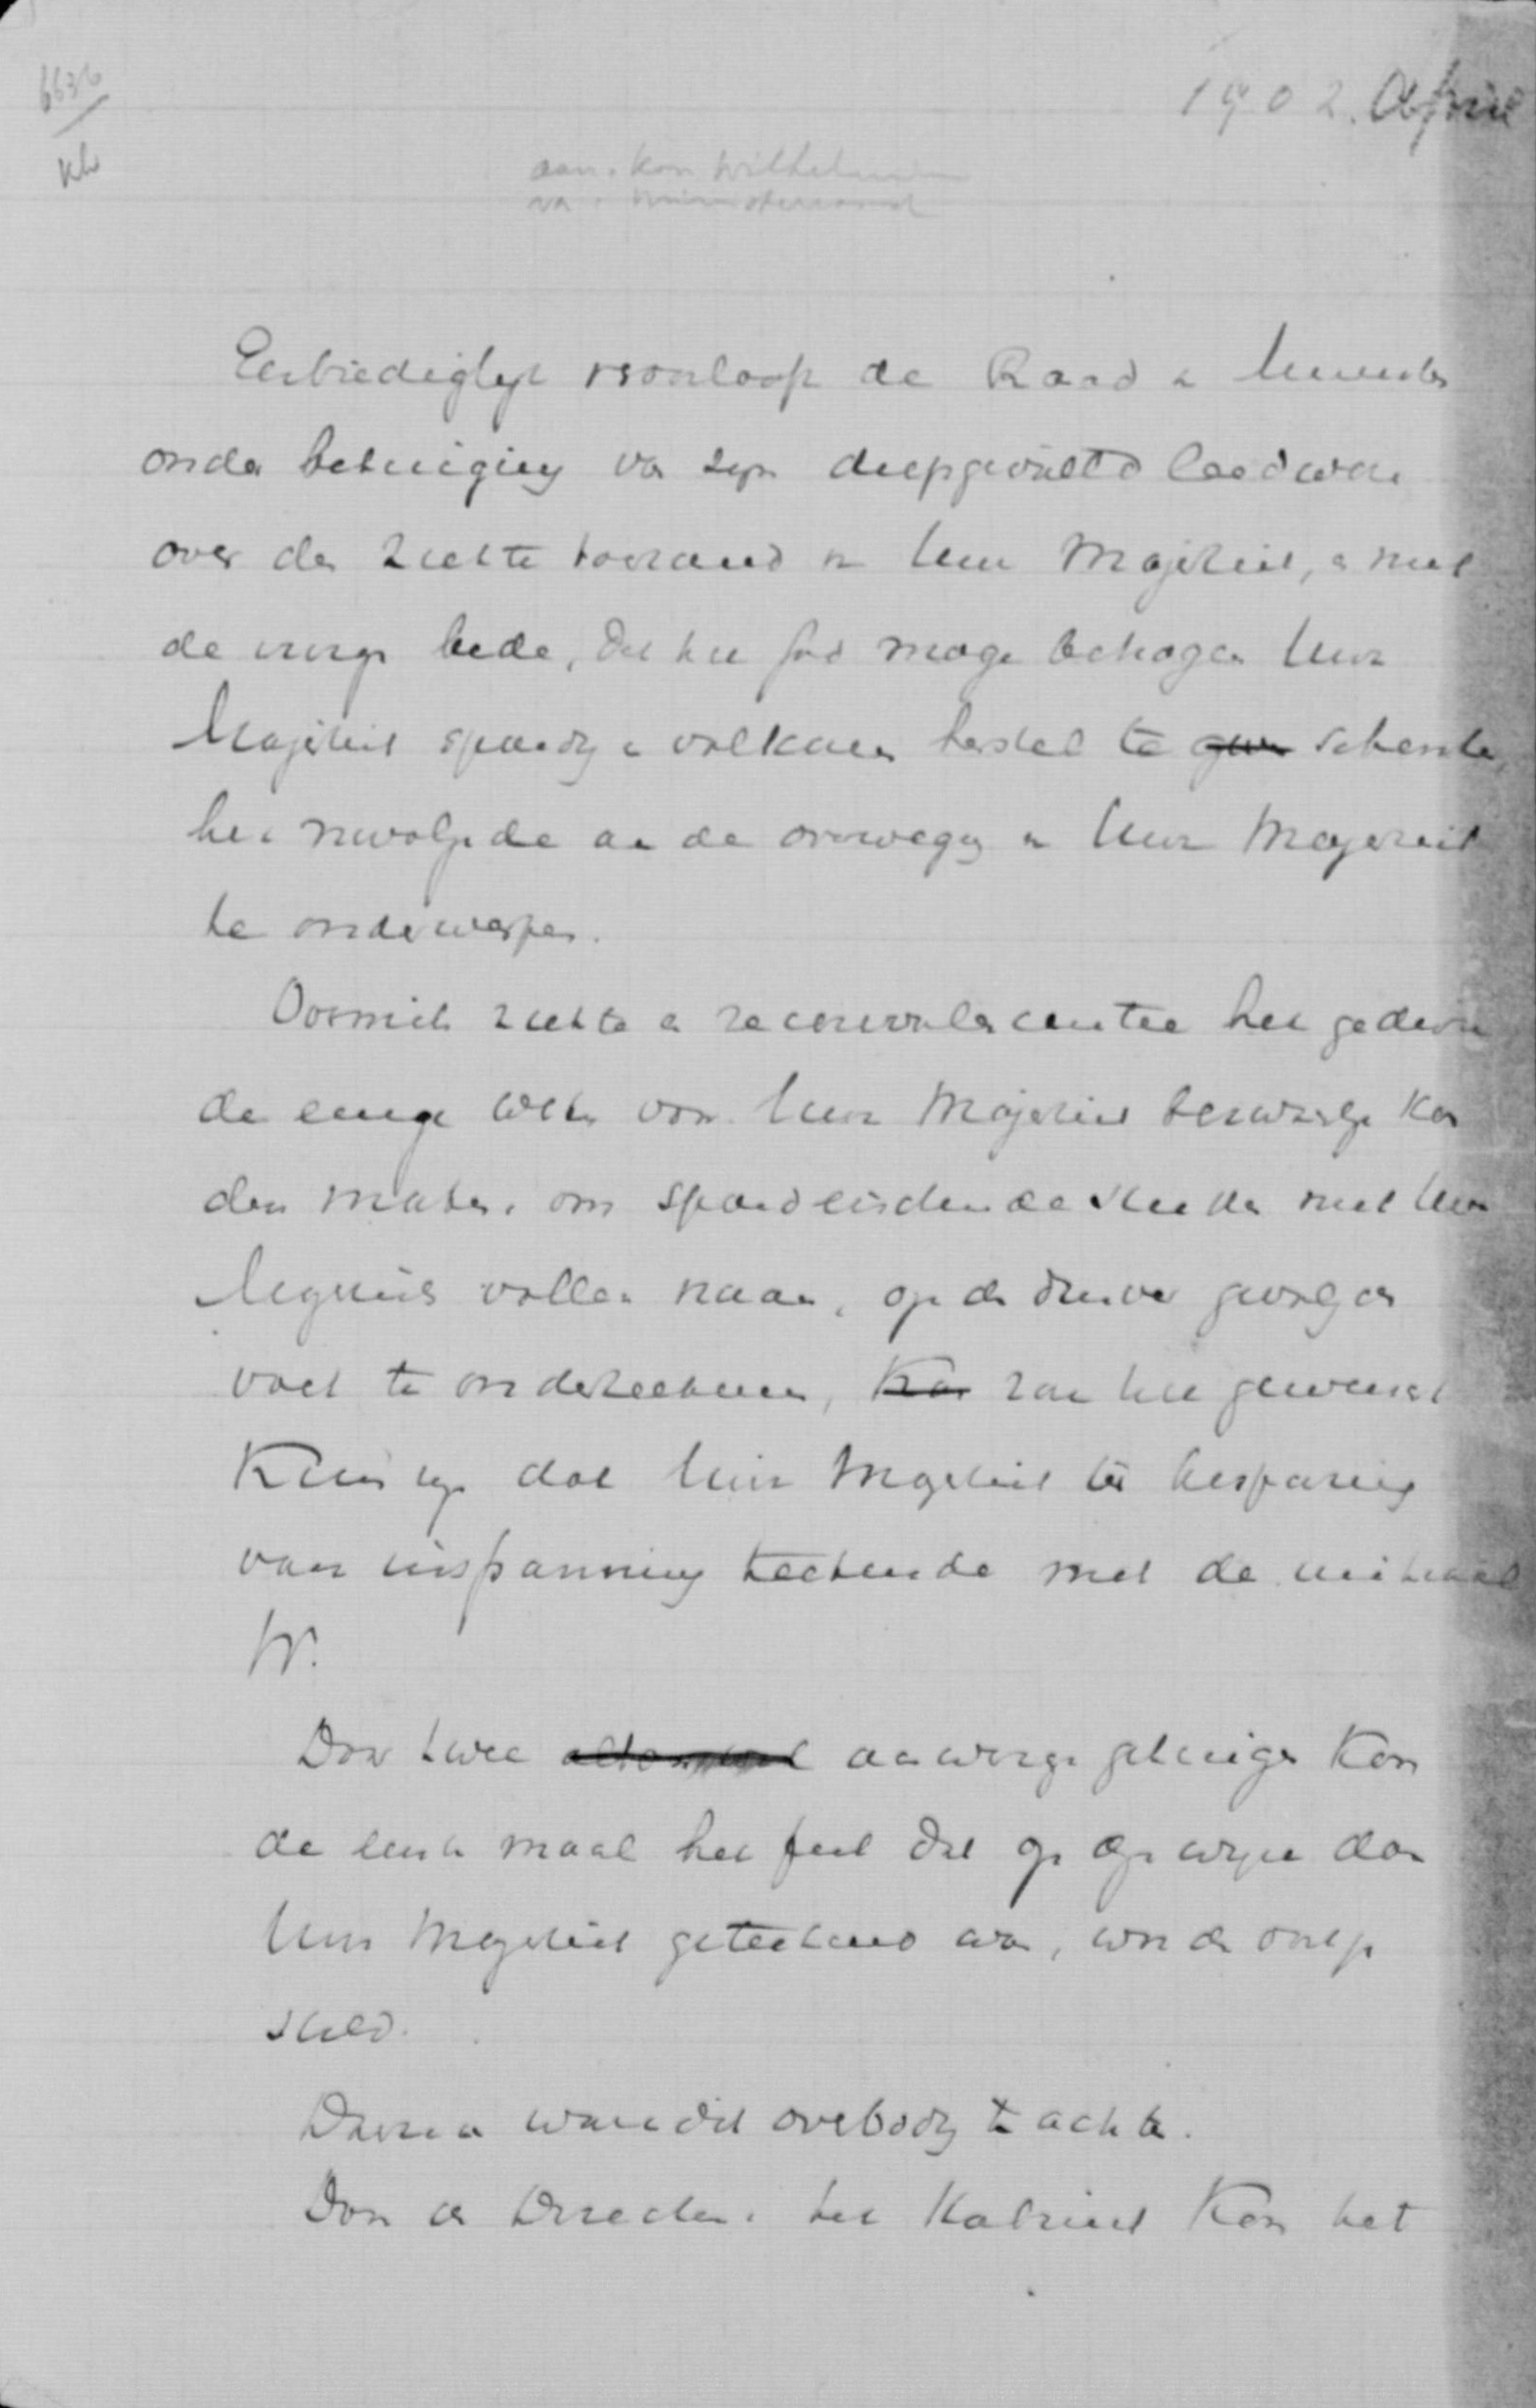 6636
Kh
1902. April
aan: kon Wilhelmina
va: ministerraad
Eerbiediglijk veroorloof de Raad v Ministers
onder betuiging van zijn diepgevoeld leedwezen
over den ziekte toestand v Uwe Majesteit, & met
de innige bede, dat het God moge behagen Uwe
Majesteit spoedig & volkomen herstel te schenken,
het navolgende aan de overweging v Uwe Majesteit
te onderwerpen.
ziekte & reconvalescentie het gedurende
de enige weken voor Uwe Majesteit bezwaarlijk kon
den maken, om spoedeischende stukken met Uwe
Majesteits vollen naam, op den daarvan gevolgden
voet te onderteekenen, zou het gewenscht
kunnen zijn dat Uwe Majesteit ter besparing
van inspanning teekende met de initiaal
W.
Door twee aanwezige getuigen kon
de eerste maal het feit dat op die wijze door
Uwe Majesteit geteekend was, worden
steld.
Daarna ware dit overbodig te achten.
Door den Directeur v het Kabinet kon het